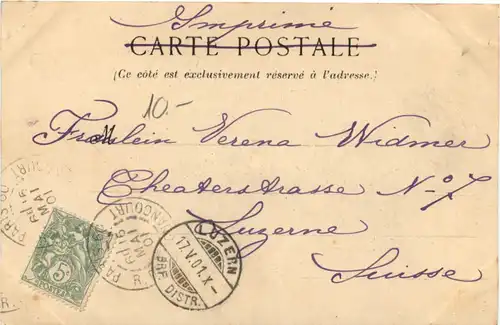 Imprimé
CARTE POSTALE
(Ce côté est exclusivement réservé à l'adresse.)
10.-
Fräulein Verena Widmer
Theaterstrasse No 7
Luzerne
Suisse
LUZERN
17.V.01.X-
BRF. DISTR.
MAI
01
MAI
01
5